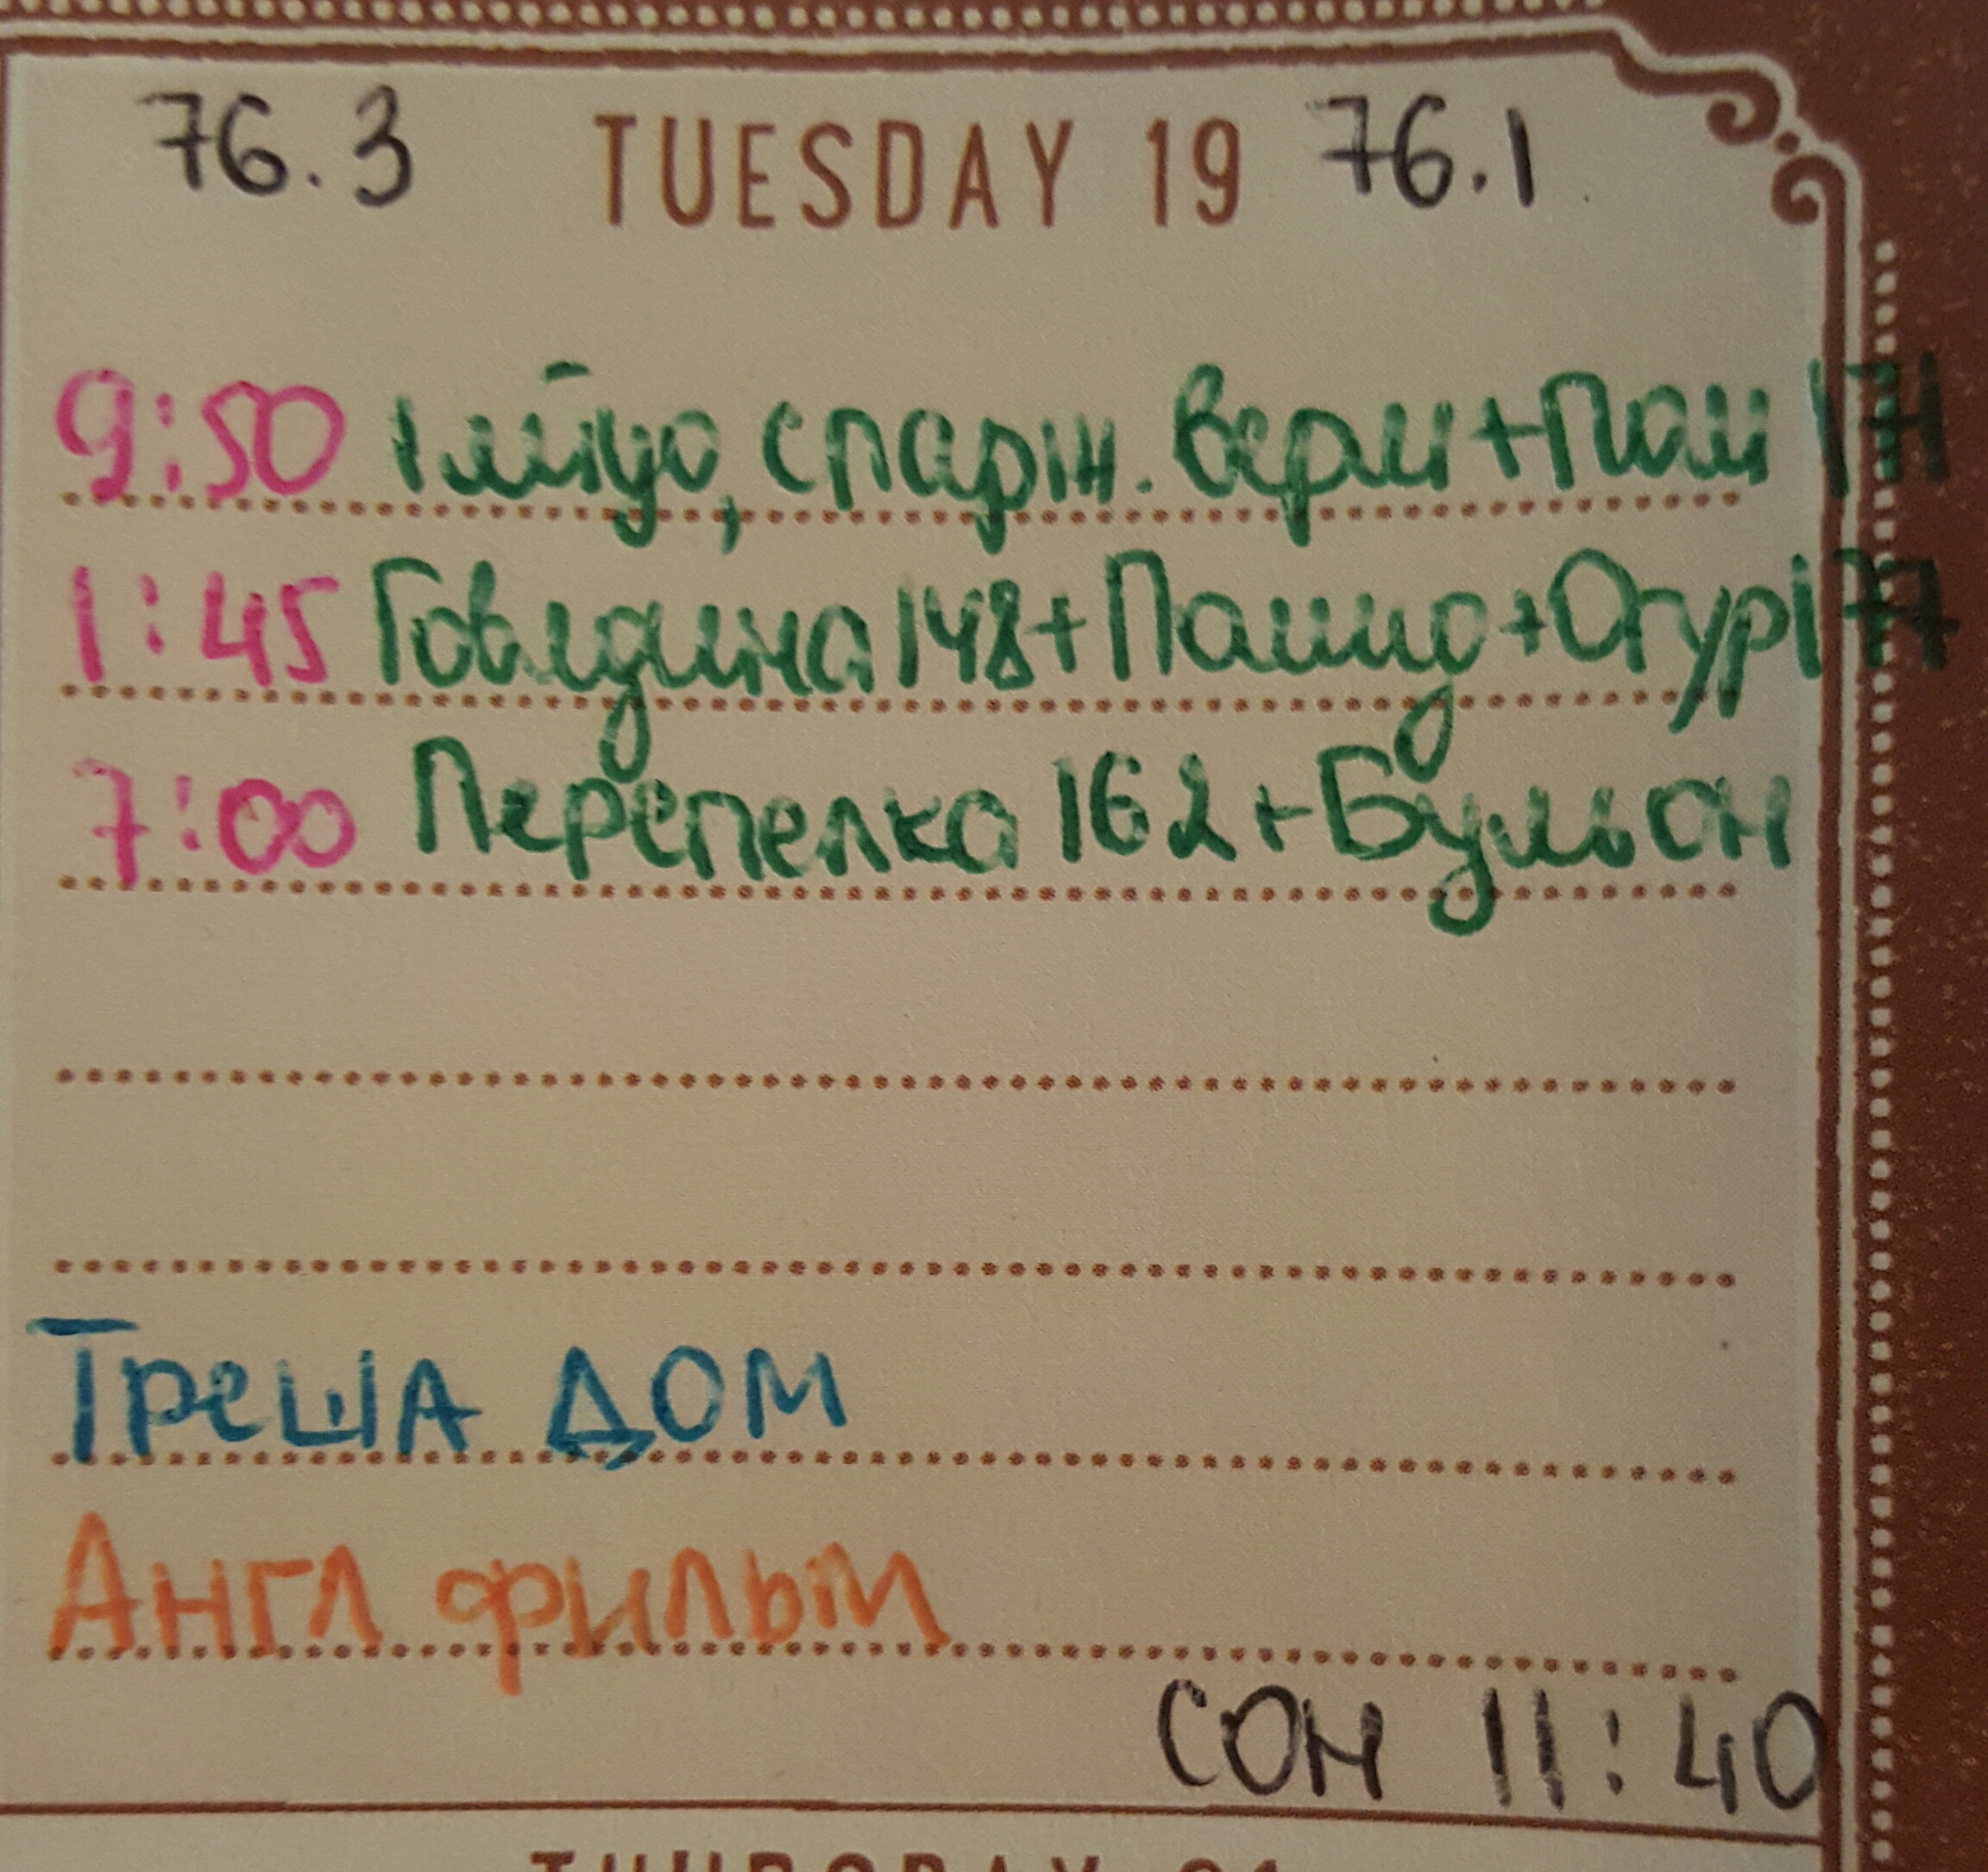 76.3 TUESDAY 19 76.1
9:50 1 яйцо, спарж. верм + Пом
1:45 Говядина 148 + Пошид + Огурі 77
7:00 Перепелка 162 + Бульон
Треша ДОМ
Англ фильм
СОН 11:40